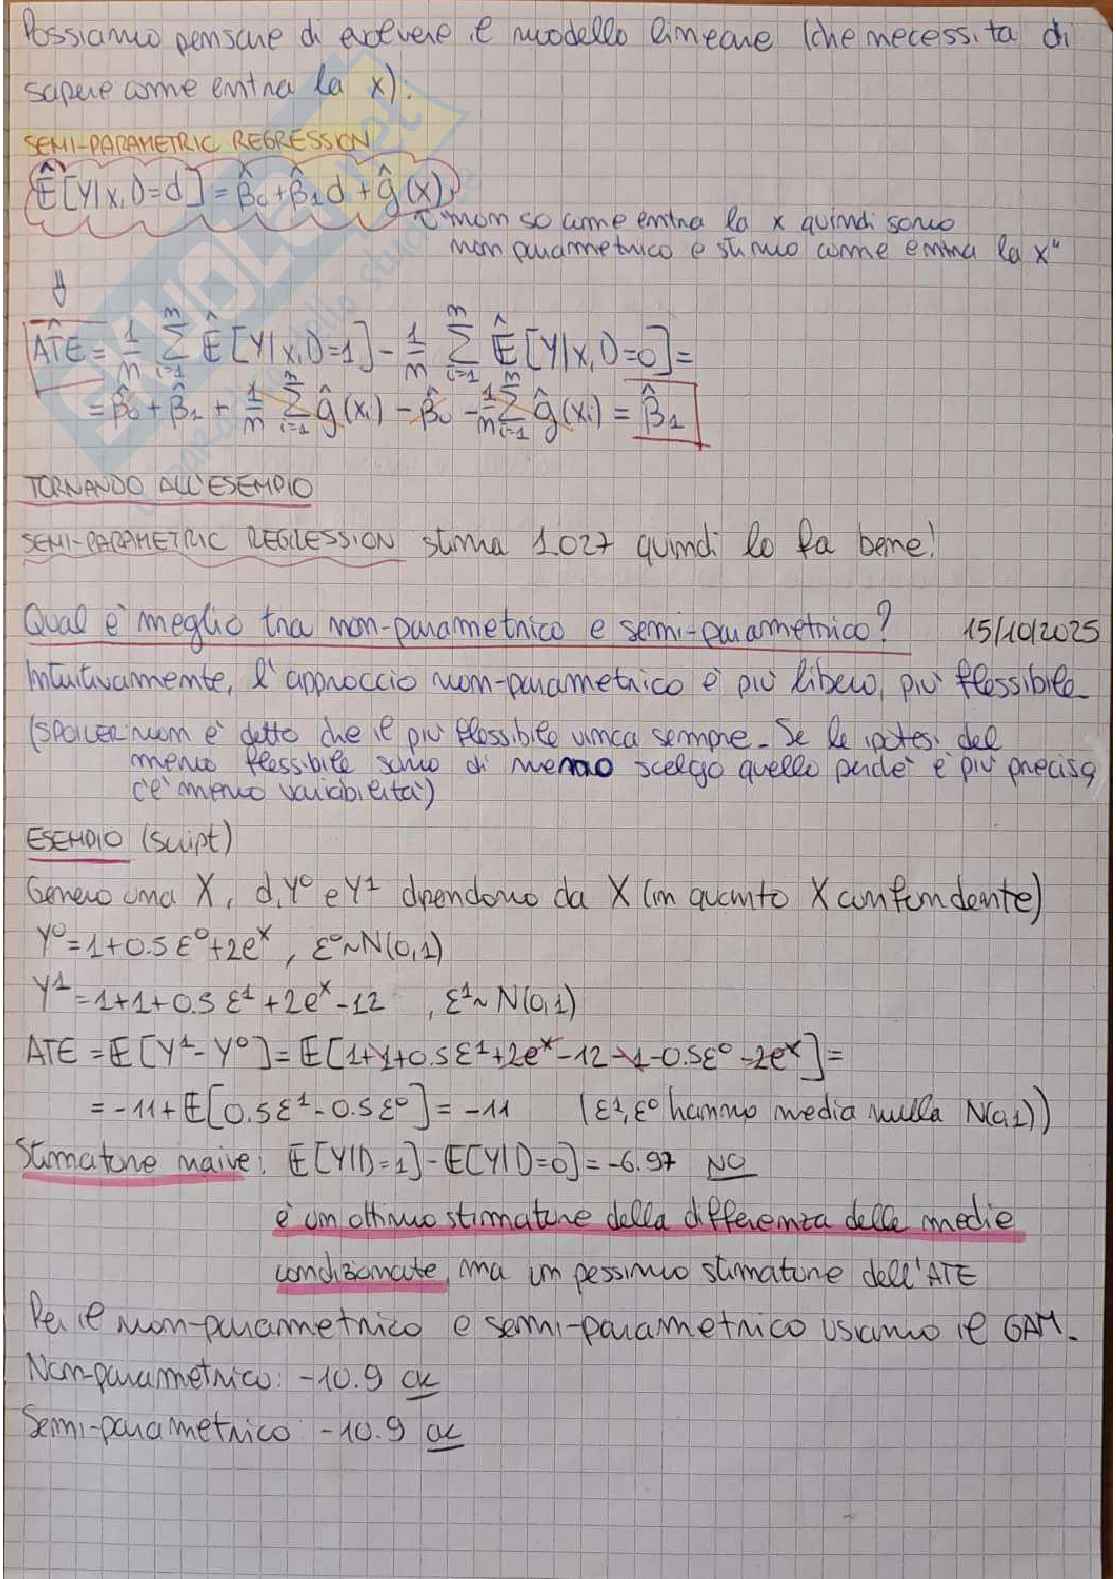 Possiamo pensare di evolvere il modello lineare (che necessita di
sapere come entra la x).
SEMI-PARAMETRIC REGRESSION
Ê[Y|x,D=d] = β̂₀+β̂₁d+ĝ(x)
"non so come entra la x quindi sono
non parametrico e stimo come entra la x"
⇓
ATÊ = 1/n Σᵢ₌₁ⁿ Ê[Y|x,D=1] - 1/n Σᵢ₌₁ⁿ Ê[Y|x,D=0] =
= β̂₀+β̂₁ + 1/n Σᵢ₌₁ⁿ ĝ(xᵢ) - β̂₀ - 1/n Σᵢ₌₁ⁿ ĝ(xᵢ) = β̂₁
TORNANDO ALL'ESEMPIO
SEMI-PARAMETRIC REGRESSION stima 1.027 quindi lo fa bene!
Qual è meglio tra non-parametrico e semi-parametrico? 15/10/2025
Intuitivamente, l'approccio non-parametrico è più libero, più flessibile
(SPOILER: non è detto che il più flessibile vinca sempre. Se le ipotesi del
meno flessibile sono di meno scelgo quello perché è più preciso,
c'è meno variabilità)
ESEMPIO (Script)
Genero una X, d, Y⁰ e Y¹ dipendono da X (in quanto X confondente)
Y⁰=1+0.5ε⁰+2eˣ, ε⁰~N(0,1)
Y¹=1+1+0.5ε¹+2eˣ-12, ε¹~N(0,1)
ATE = E[Y¹-Y⁰] = E[1+1+0.5ε¹+2eˣ-12-1-0.5ε⁰-2eˣ] =
= -11+E[0.5ε¹-0.5ε⁰] = -11 (ε¹,ε⁰ hanno media nulla N(0,1))
Stimatore naive: E[Y|D=1]-E[Y|D=0] = -6.97 NO
è un ottimo stimatore della differenza delle medie
condizionate, ma un pessimo stimatore dell'ATE
Per il non-parametrico e semi-parametrico usiamo il GAM.
Non-parametrico: -10.9 ok
Semi-parametrico -10.9 ok